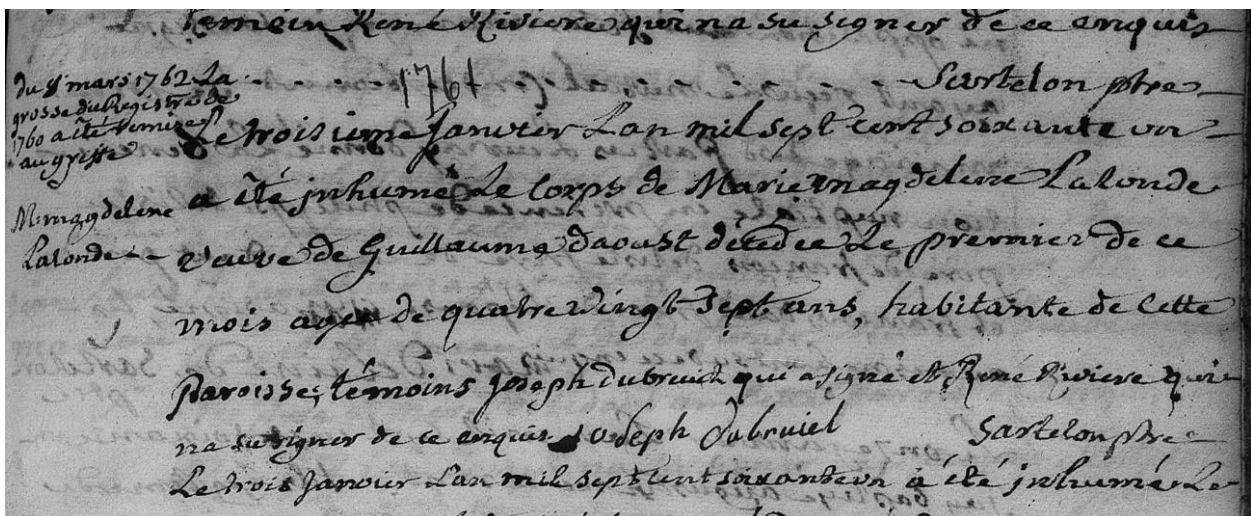 temoin René Riviere qui na su signer de ce enquis
Sartelon ptre
1761
du 8 mars 1762 La
grosse du Registre de
1760 a été remise
au greffe
Le troisieme Janvier Lan mil sept cent soixante un
M. magdelene
Lalonde
a été inhumé Le Corps de Marie magdelene Lalonde
veuve de Guillaume daoust décédée Le premier de ce
mois agée de quatre vingt sept ans, habitante de Cette
Paroisse, témoins Joseph dubreuil qui a signé et René Riviere qui
na su signer de ce enquis Joseph Dubruiel Sartelon ptre
Le trois Janvier Lan mil sept cent soixante un à été inhumé Le